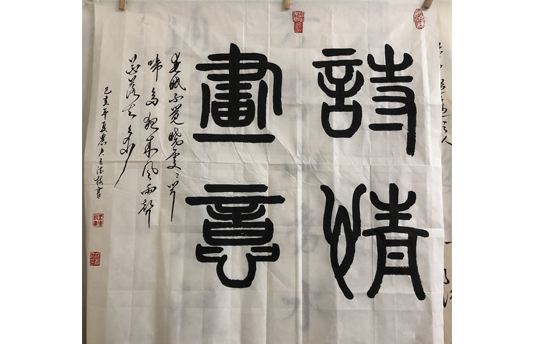 詩情
畫意
春眠不覺曉處々聞
啼鳥夜来風雨聲
花落知多少
己亥年夏